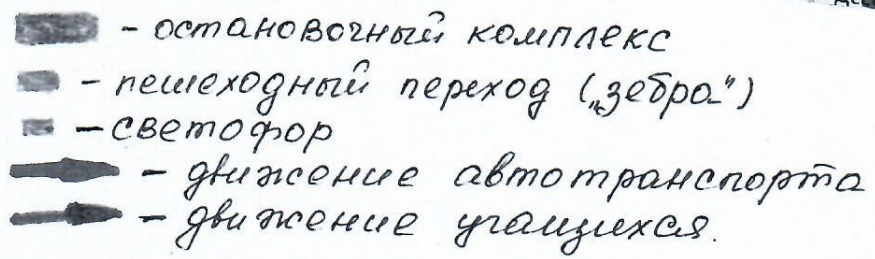 - остановочный комплекс
- пешеходный переход („зебра“)
- светофор
- движение автотранспорта
- движение учащихся.